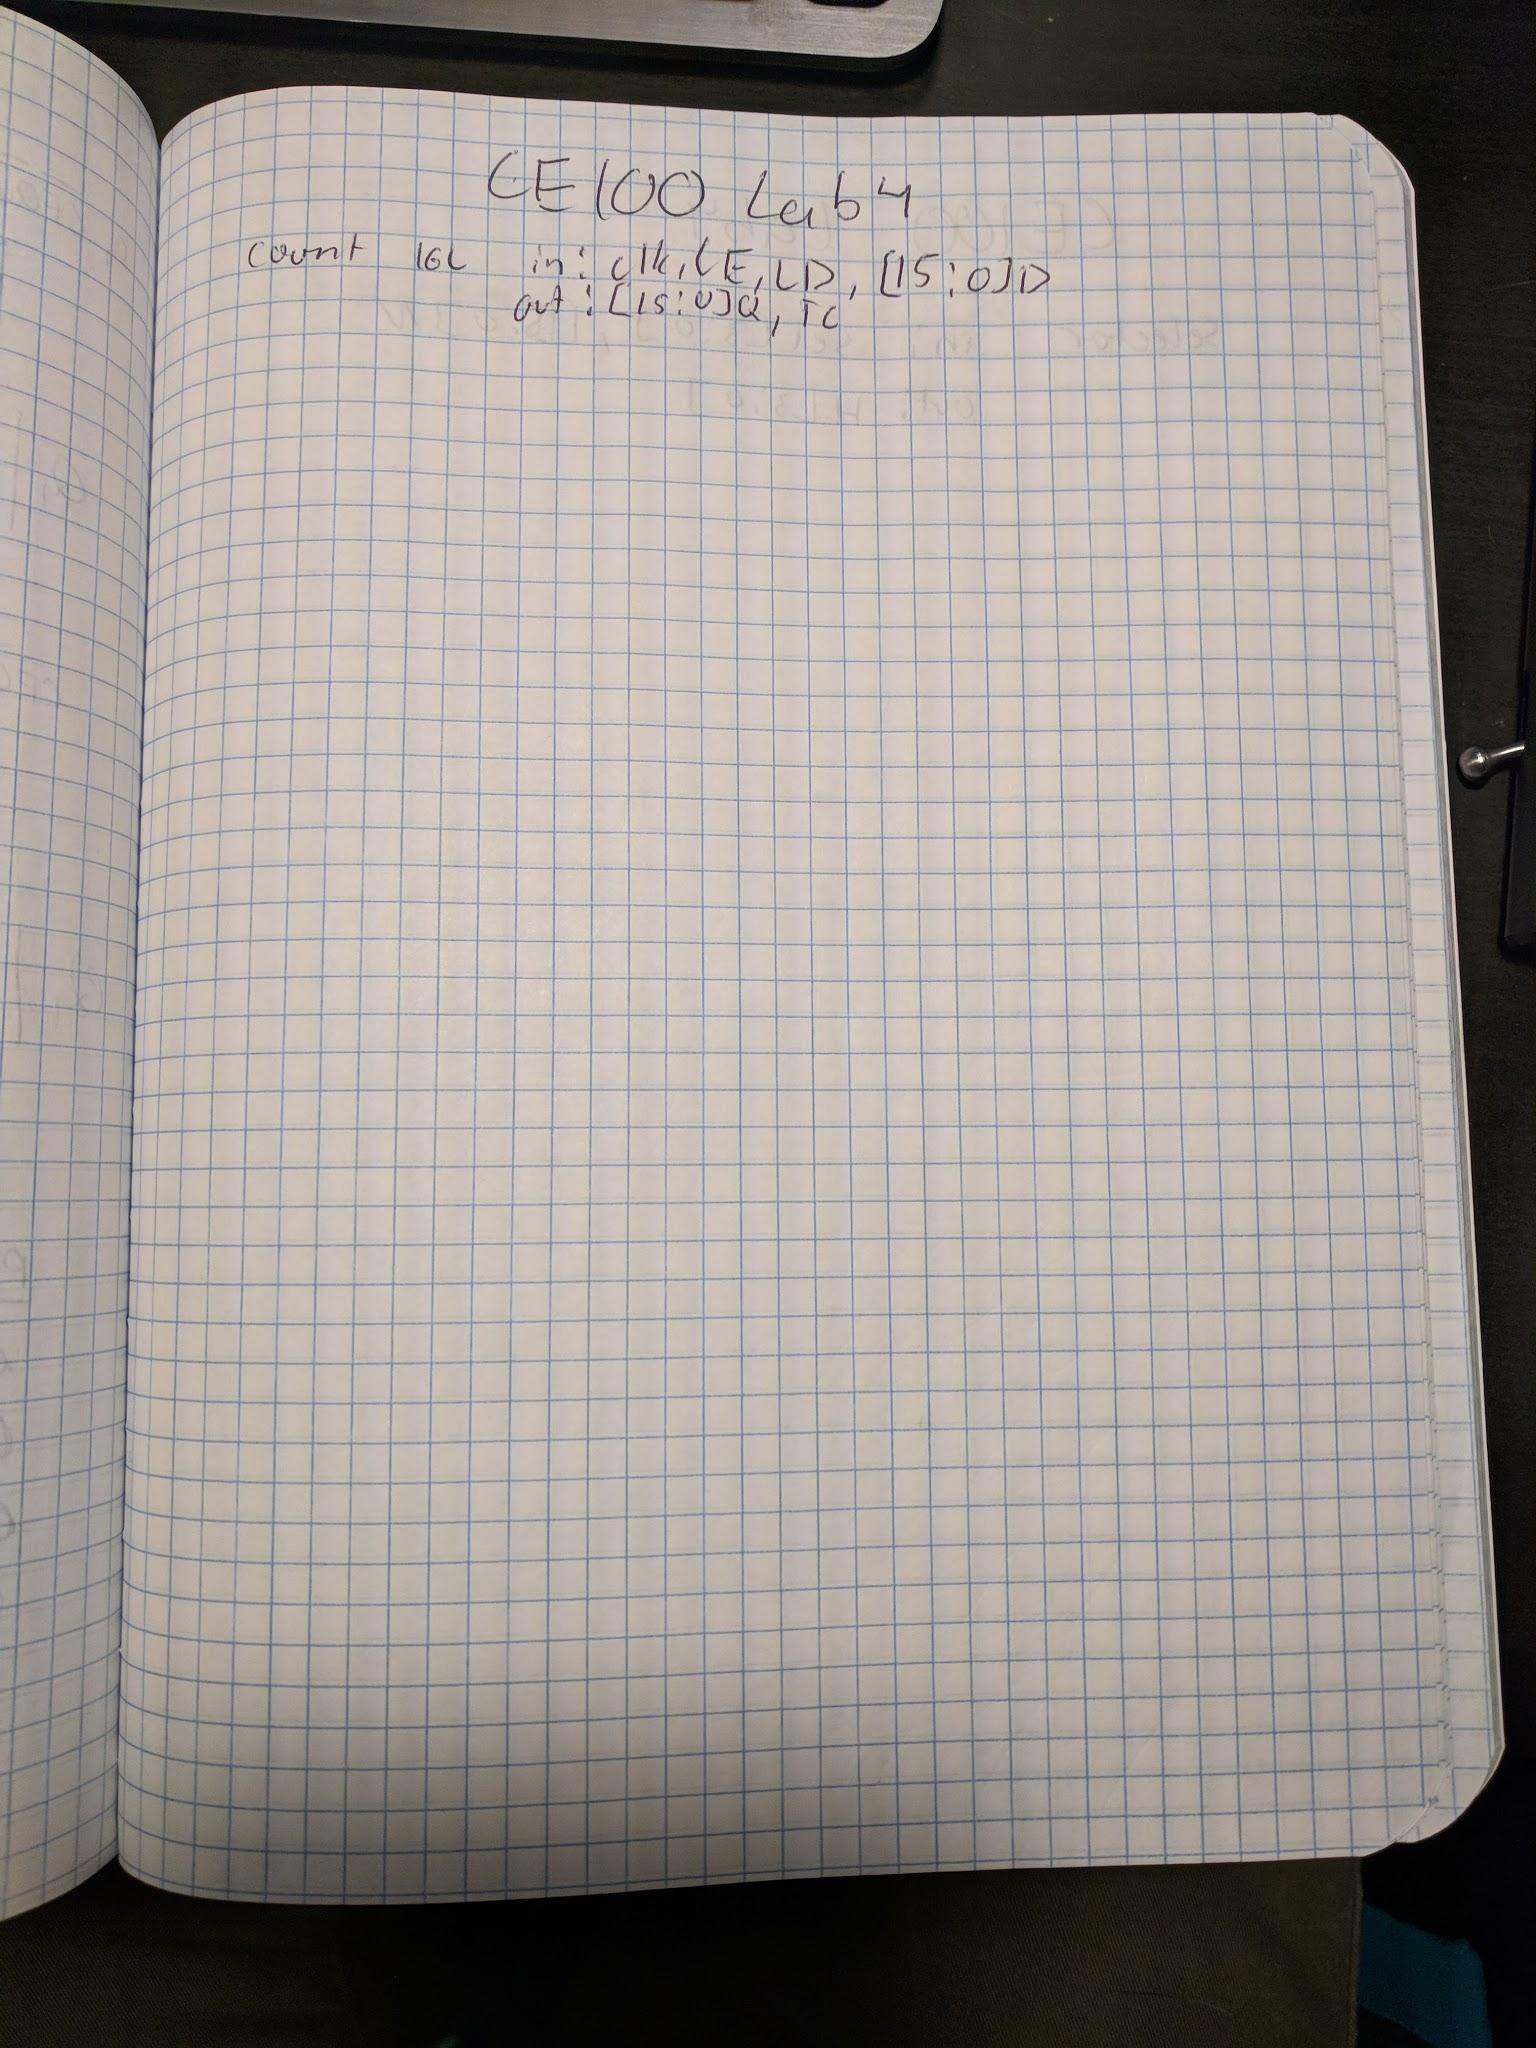 CE100 Lab4
count 16L in: clk, CE, LD, [15:0]D
out: [15:0]Q, TC